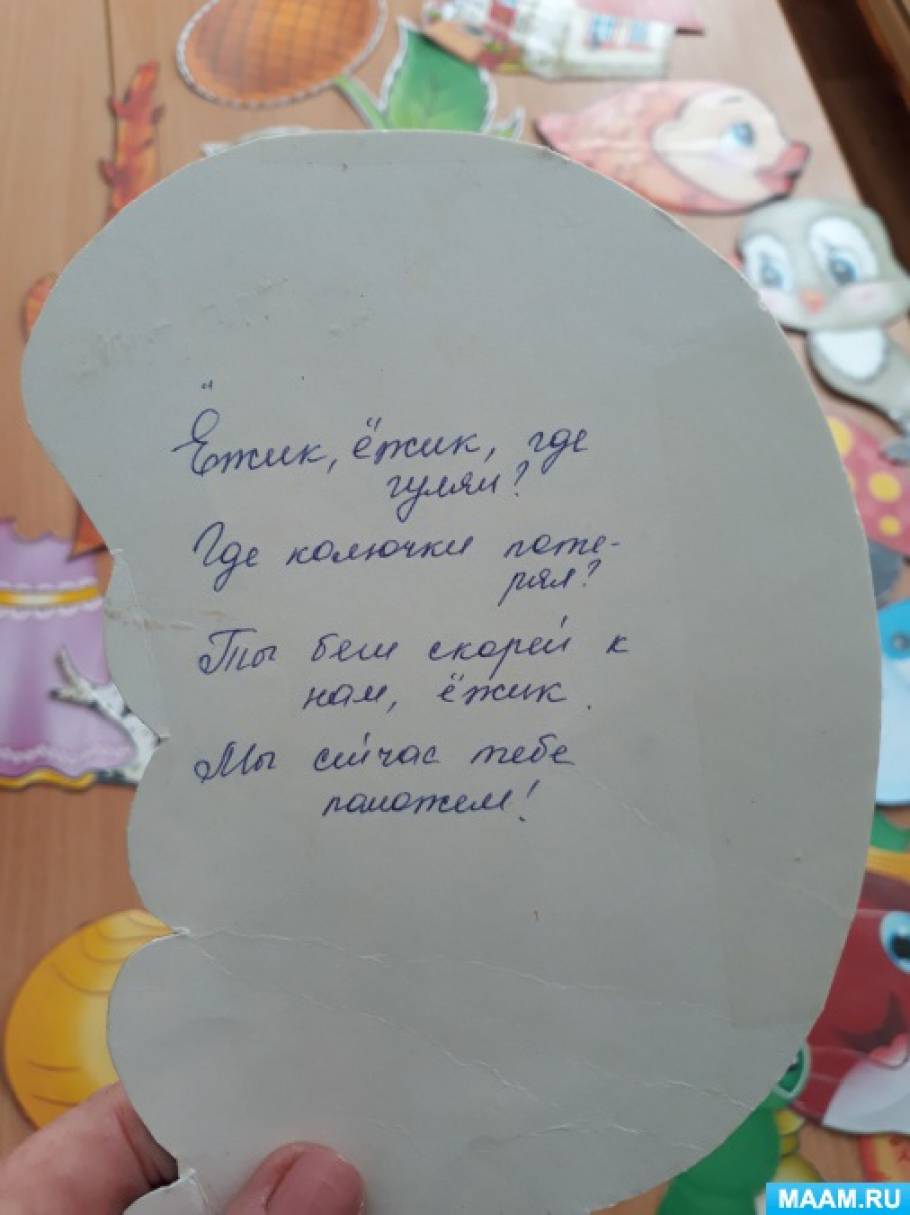 Ёжик, ёжик, где
гулял?
Где колючки поте-
рял?
Ты беги скорей к
нам, ёжик.
Мы сейчас тебе
поможем!
MAAM.RU